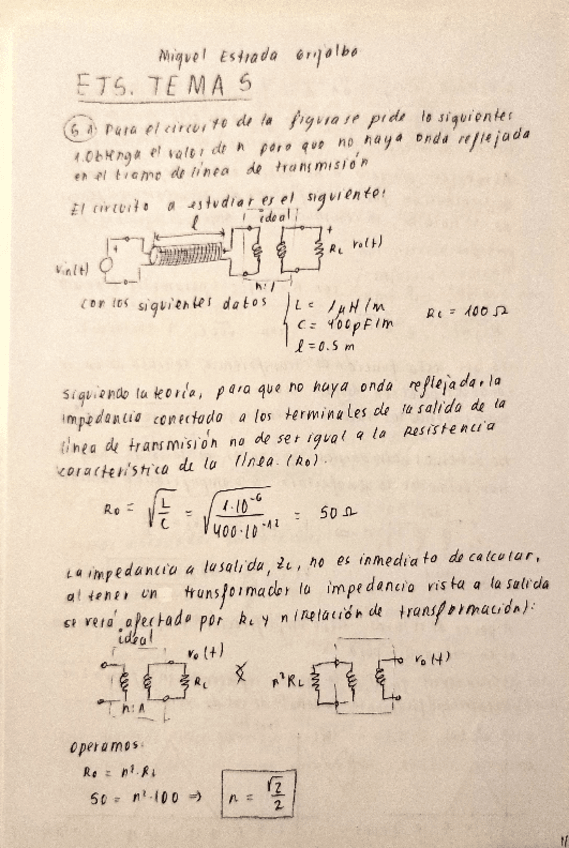 Miguel Estrada Grijalbo
ETS. TEMA 5
5.1 Para el circuito de la figura se pide lo siguiente:
1. Obtenga el valor de n para que no haya onda reflejada
en el tramo de línea de transmisión
El circuito a estudiar es el siguiente:
l
ideal
+
+
Vin(t)
RL
vo(t)
n:1
con los siguientes datos
L = 1μH/m
C = 400pF/m
l = 0.5 m
RL = 100 Ω
Siguiendo la teoría, para que no haya onda reflejada, la
impedancia conectada a los terminales de la salida de la
línea de transmisión ha de ser igual a la Resistencia
característica de la línea. (Ro).
Ro = √(L/C) = √(1·10^-6 / 400·10^-12) = 50 Ω
La impedancia a la salida, ZL, no es inmediato de calcular,
al tener un transformador la impedancia vista a la salida
se verá afectado por RL y n (relación de transformación):
ideal
vo(t)
RL
n:1
n²RL
vo(t)
Operamos:
Ro = n²·RL
50 = n²·100 ⇒ n = √2/2